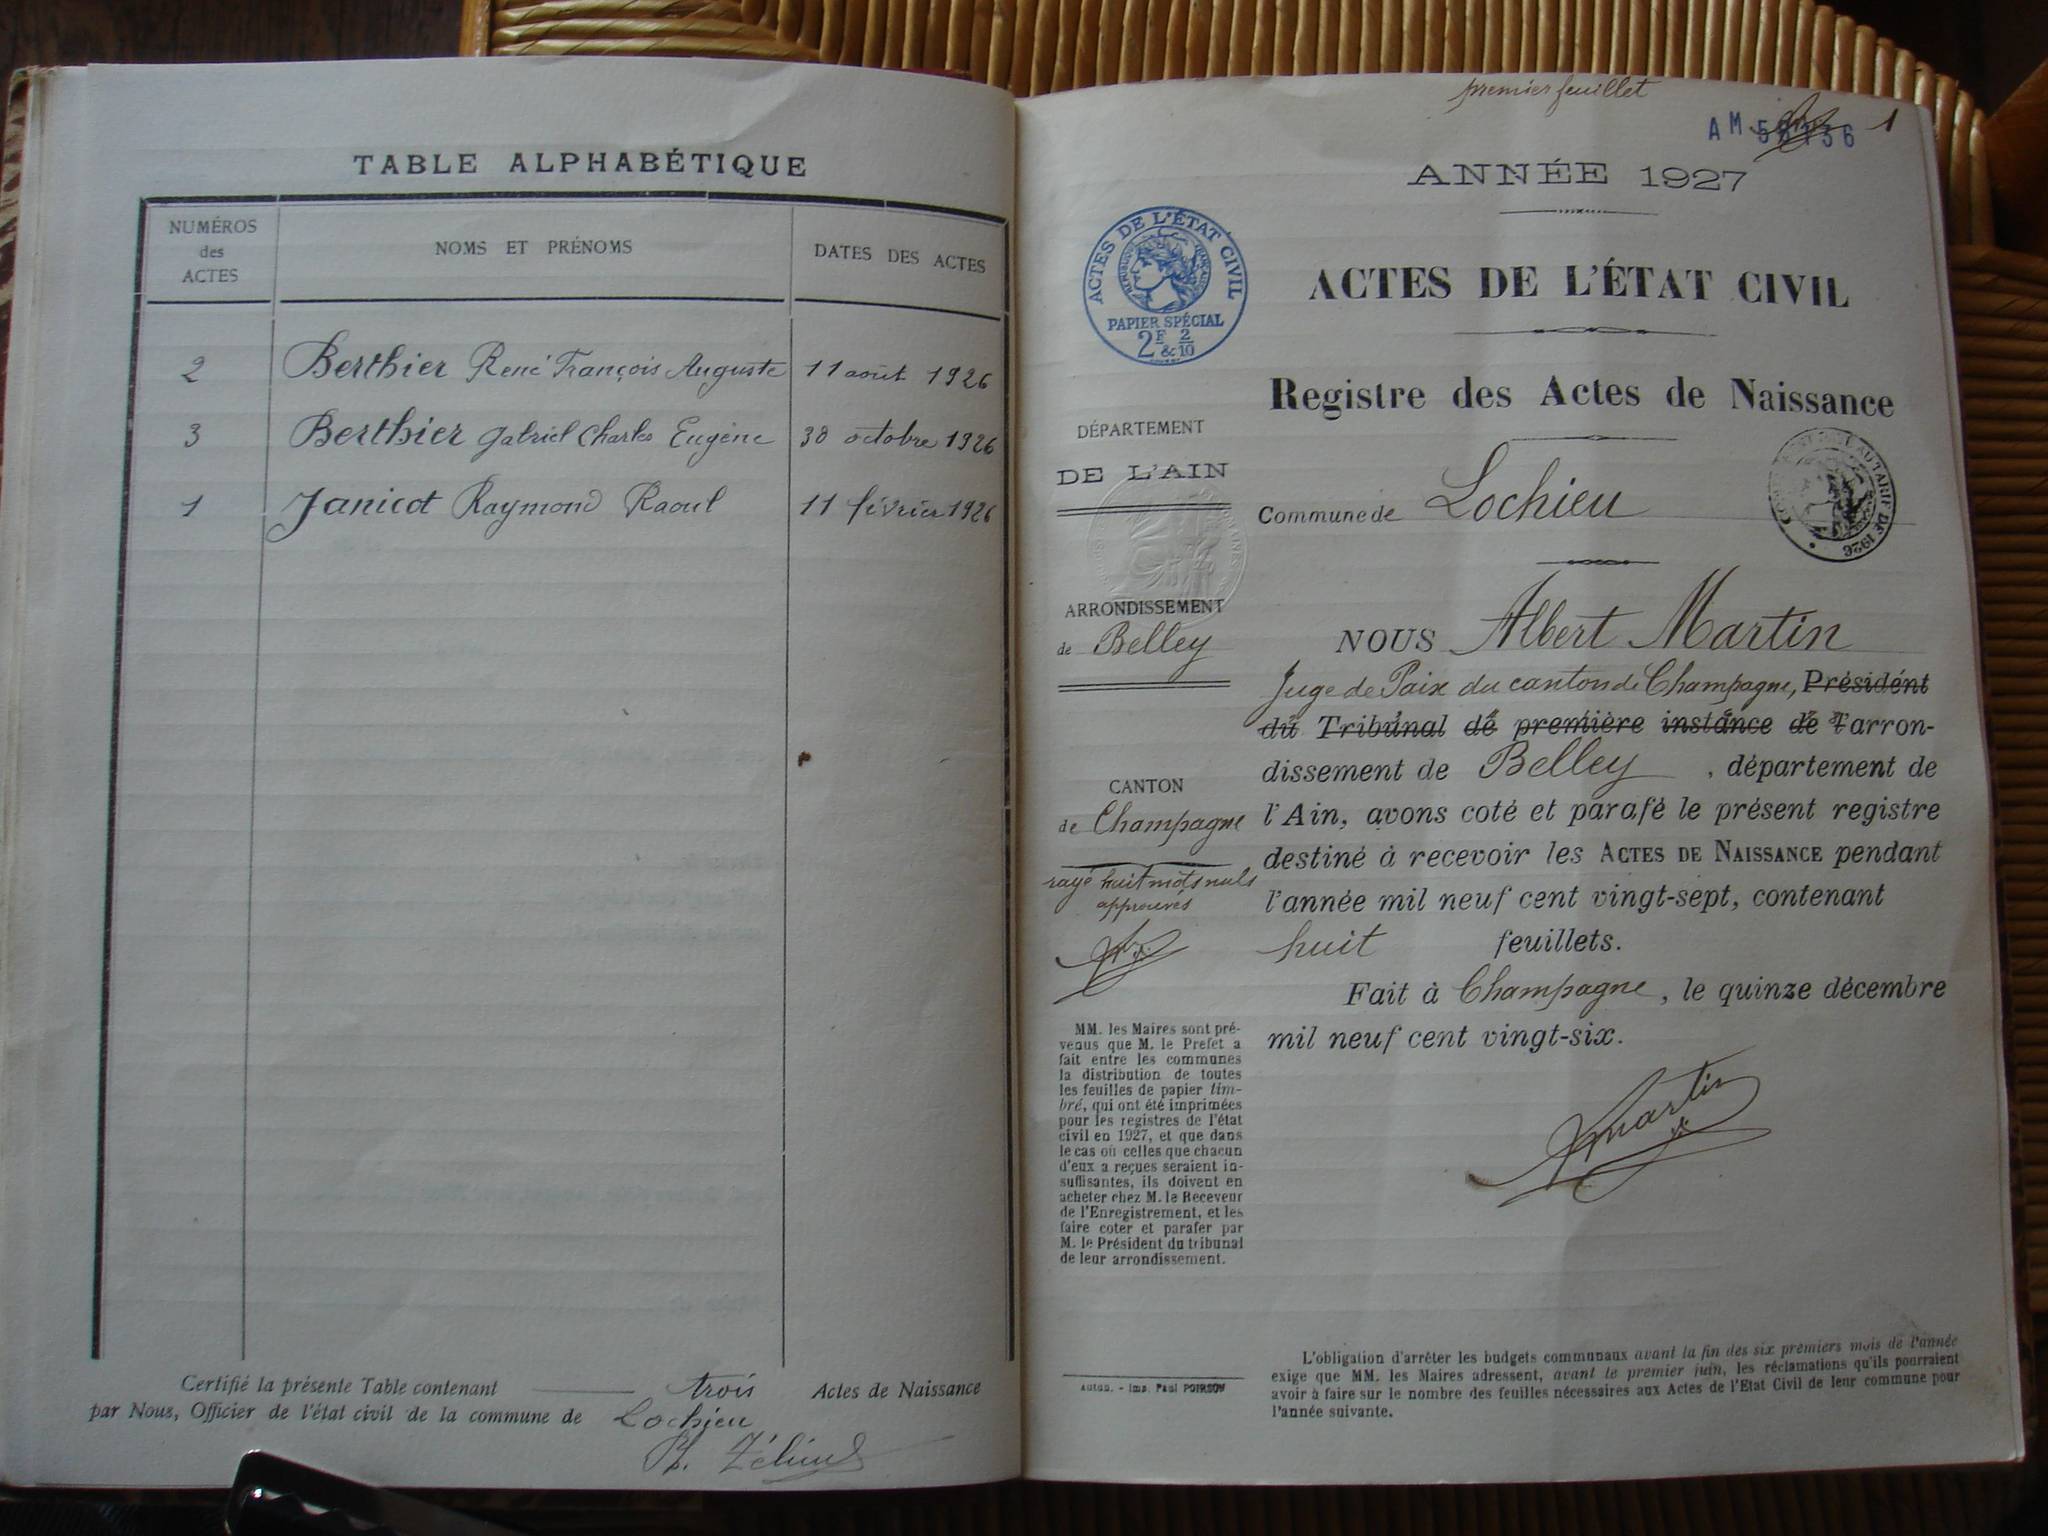 TABLE ALPHABÉTIQUE
NUMÉROS
des
ACTES
NOMS ET PRÉNOMS
DATES DES ACTES
2 Berthier René François Auguste 11 août 1926
3 Berthier Gabriel Charles Eugène 30 octobre 1926
1 Janicot Raymond Raoul 11 février 1926
Certifié la présente Table contenant trois Actes de Naissance
par Nous, Officier de l'état civil de la commune de Lochieu
premier feuillet
AM 1
ANNÉE 1927
ACTES DE L'ÉTAT CIVIL
RÉPUBLIQUE FRANÇAISE
PAPIER SPÉCIAL
2F & 2/10
ACTES DE L'ÉTAT CIVIL
Registre des Actes de Naissance
DÉPARTEMENT
DE L'AIN
Commune de Lochieu
AU TARIF DE
1926
ARRONDISSEMENT
de Belley
CANTON
de Champagne
rayé huit mots nuls
approuvés
NOUS Albert Martin
Juge de Paix du canton de Champagne, Président
du Tribunal de première instance de l'arron-
dissement de Belley, département de
l'Ain, avons coté et parafé le présent registre
destiné à recevoir les ACTES DE NAISSANCE pendant
l'année mil neuf cent vingt-sept, contenant
huit feuillets.
Fait à Champagne, le quinze décembre
mil neuf cent vingt-six.
Martin
MM. les Maires sont pré-
venus que M. le Prefet a
fait entre les communes
la distribution de toutes
les feuilles de papier tim-
bré, qui ont été imprimées
pour les registres de l'état
civil en 1927, et que dans
le cas où celles que chacun
d'eux a reçues seraient in-
suffisantes, ils doivent en
acheter chez M. le Receveur
de l'Enregistrement, et les
faire coter et parafer par
M. le Président du tribunal
de leur arrondissement.
Autun. - Imp. Paul POIRSON
L'obligation d'arrêter les budgets communaux avant la fin des six premiers mois de l'année
exige que MM. les Maires adressent, avant le premier juin, les réclamations qu'ils pourraient
avoir à faire sur le nombre des feuilles nécessaires aux Actes de l'Etat Civil de leur commune pour
l'année suivante.